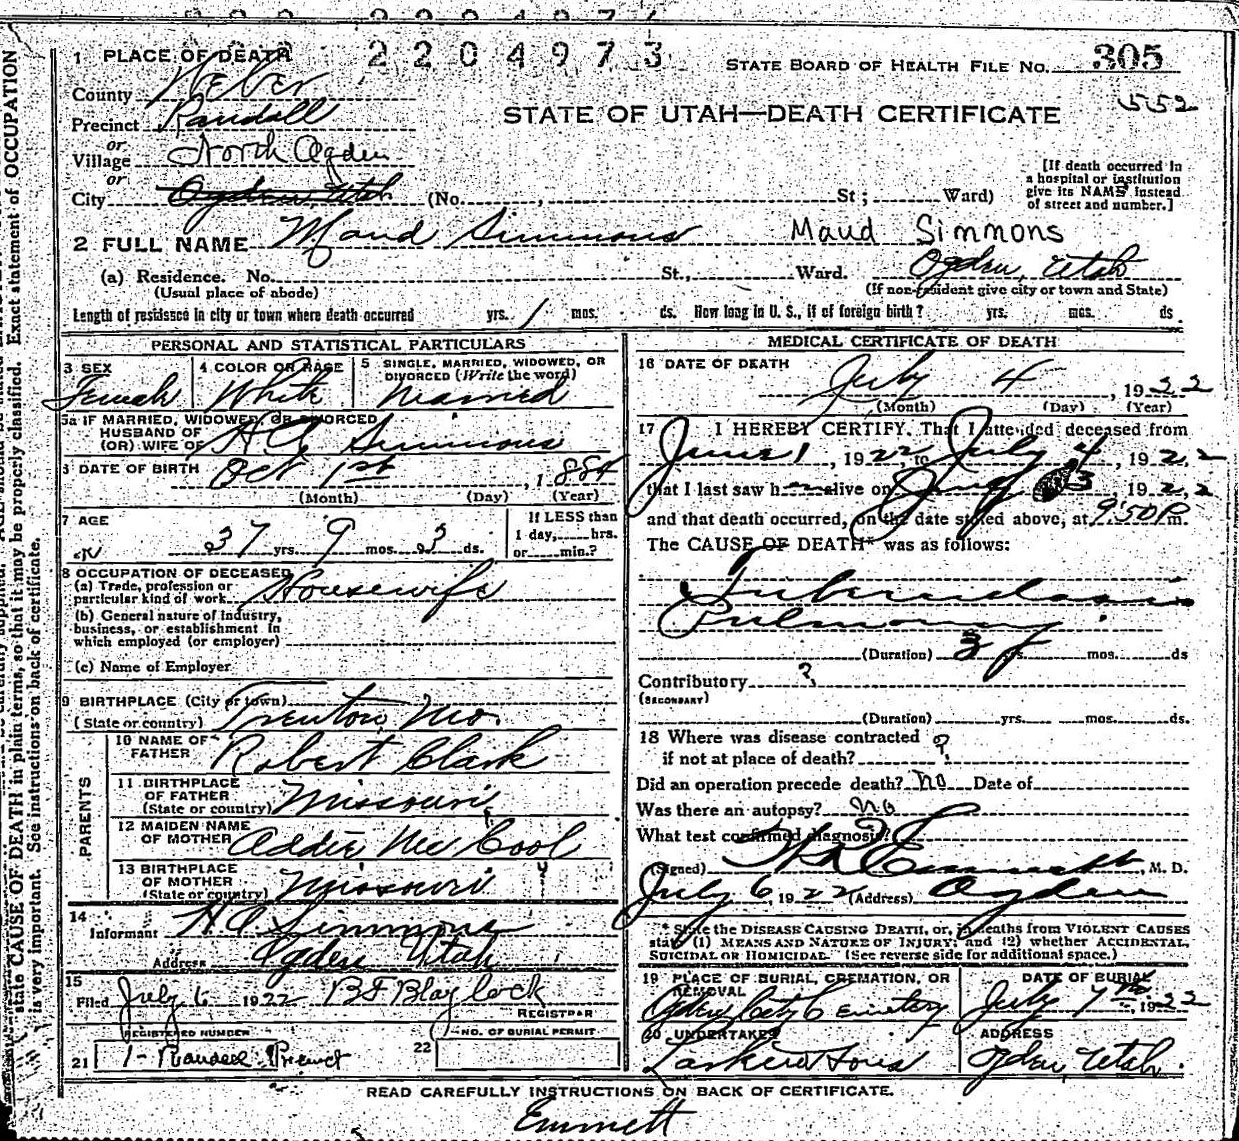 2204973
1 PLACE OF DEATH
STATE BOARD OF HEALTH FILE NO. 305
County Weber
552
STATE OF UTAH—DEATH CERTIFICATE
Precinct Randall
or
Village North Ogden
or
City Ogden Utah (No. , St; Ward)
[If death occurred in
a hospital or institution
give its NAME instead
of street and number.]
2 FULL NAME Maud Simmons Maud Simmons
(a) Residence. No. St., Ward. Ogden, Utah
(Usual place of abode) (If non-resident give city or town and State)
Length of residence in city or town where death occurred yrs. 1 mos. ds. How long in U. S., if of foreign birth? yrs. mos. ds.
PERSONAL AND STATISTICAL PARTICULARS
3 SEX 4 COLOR OR RACE 5 SINGLE, MARRIED, WIDOWED, OR
DIVORCED (Write the word)
Female White Married
5a IF MARRIED, WIDOWED, OR DIVORCED
HUSBAND OF
(OR) WIFE OF H C Simmons
6 DATE OF BIRTH Oct 1st, 1884
(Month) (Day) (Year)
7 AGE If LESS than
1 day, hrs.
37 yrs. 9 mos. 3 ds. or min.?
8 OCCUPATION OF DECEASED
(a) Trade, profession or
particular kind of work Housewife
(b) General nature of industry,
business, or establishment in
which employed (or employer)
(c) Name of Employer
9 BIRTHPLACE (City or town)
(State or country) Trenton, Mo.
PARENTS
10 NAME OF
FATHER Robert Clark
11 BIRTHPLACE
OF FATHER
(State or country) Missouri
12 MAIDEN NAME
OF MOTHER Addie Mc Cool
13 BIRTHPLACE
OF MOTHER
(State or country) Missouri
14
Informant H C Simmons
Address Ogden Utah
15
Filed July 6 1922 B F Blaylock
REGISTRAR
REGISTERED NUMBER NO. OF BURIAL PERMIT
21 1- Randall Precinct 22
MEDICAL CERTIFICATE OF DEATH
16 DATE OF DEATH
July 4, 1922
(Month) (Day) (Year)
17 I HEREBY CERTIFY, That I attended deceased from
June 1, 1922 to July 4, 1922
that I last saw h alive on July 3 1922
and that death occurred, on the date stated above, at 9:50 P m.
The CAUSE OF DEATH* was as follows:
Tuberculosis
Pulmonary
(Duration) 3 yrs. mos. ds
Contributory ?
(SECONDARY)
(Duration) yrs. mos. ds.
18 Where was disease contracted
if not at place of death? ?
Did an operation precede death? No Date of
Was there an autopsy? no
What test confirmed diagnosis?
(Signed) Emmett, M. D.
July 6, 1922 (Address) Ogden
* State the DISEASE CAUSING DEATH, or, in deaths from VIOLENT CAUSES
state (1) MEANS AND NATURE OF INJURY; and (2) whether ACCIDENTAL,
SUICIDAL OR HOMICIDAL. (See reverse side for additional space.)
19 PLACE OF BURIAL, CREMATION, OR
REMOVAL DATE OF BURIAL
Ogden City Cemetery July 7th, 1922
20 UNDERTAKER ADDRESS
Larkin & Sons Ogden, Utah.
READ CAREFULLY INSTRUCTIONS ON BACK OF CERTIFICATE.
Emmett
state CAUSE OF DEATH in plain terms, so that it may be properly classified. Exact statement of OCCUPATION
is very important. See instructions on back of certificate.